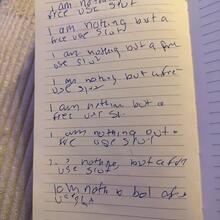 I am nothing
free use slut
I am nothing but a
free use slut
I am nothing but a free
use slut
I am nothing but a free
use slut
I am nothing but a
free use sl
I am nothing but a
free use slut
nothing but a free
use slut
but a
use slut